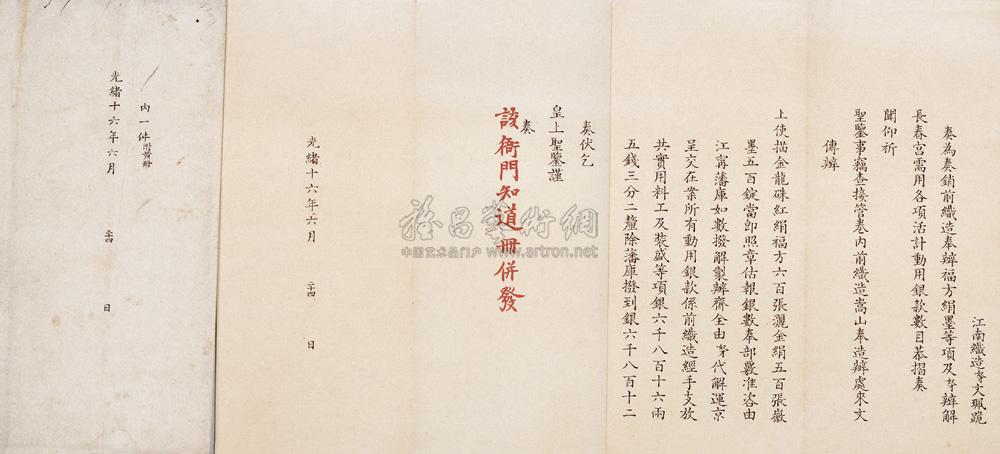 江南織造奴才文珮跪
奏為奏銷前織造奉辦福方絹墨等項及奴才辦解
長春宮需用各項活計動用銀款數目恭摺奏
聞仰祈
聖鑒事竊查接管卷內前織造嵩山奉造辦處來文
傳辦
上使描金龍硃紅絹福方六百張灑金絹五百張徽
墨五百錠當即照章估報銀數奉部覈准咨由
江甯藩庫如數撥解製辦齊全由奴才代解運京
呈交在案所有動用銀款係前織造經手支放
共實用料工及裝盛等項銀六千八百十六兩
五錢三分二釐除藩庫撥到銀六千八百十二
奏伏乞
皇上聖鑒謹
奏
該衙門知道冊併發
光緒十六年六月 二十四 日
內一件附黃冊
光緒十六年六月 二十四 日
雅昌藝術網
中国艺术品门户 www.artron.net